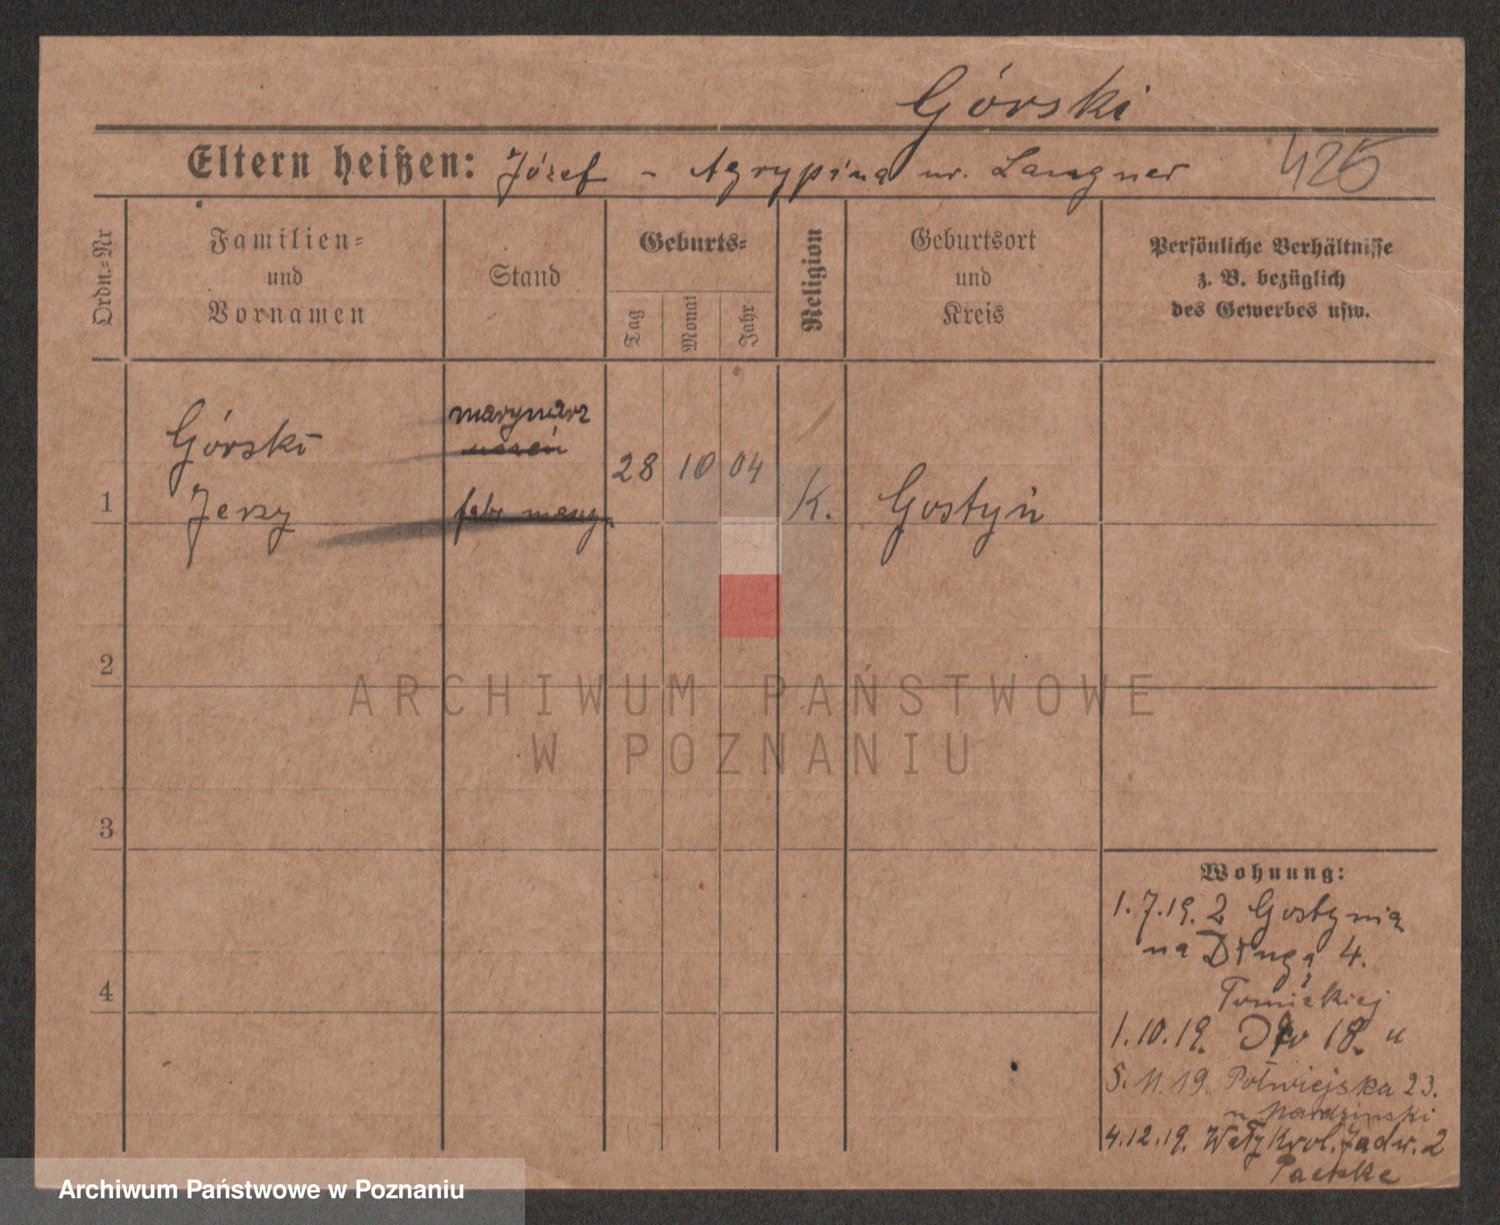 Górski
Eltern heißen: Józef - Agrypina ur. Langner 425
Ordn.=Nr
Familien=
und
Vornamen
Stand
Geburts=
Tag
Monat
Jahr
Religion
Geburtsort
und
Kreis
Persönliche Verhältnisse
z. B. bezüglich
des Gewerbes usw.
1
Górski
Jerzy
marynarz
uczeń
28 10 04
K.
Gostyń
2
ARCHIWUM PAŃSTWOWE
W POZNANIU
3
Wohnung:
1.7.19. z Gostynia
na Długą 4.
Tomickiej
4
1.10.19. 18. u
5.11.19. Półwiejska 23.
u
4.12.19. Wały Król. Jadw. 2
Archiwum Państwowe w Poznaniu